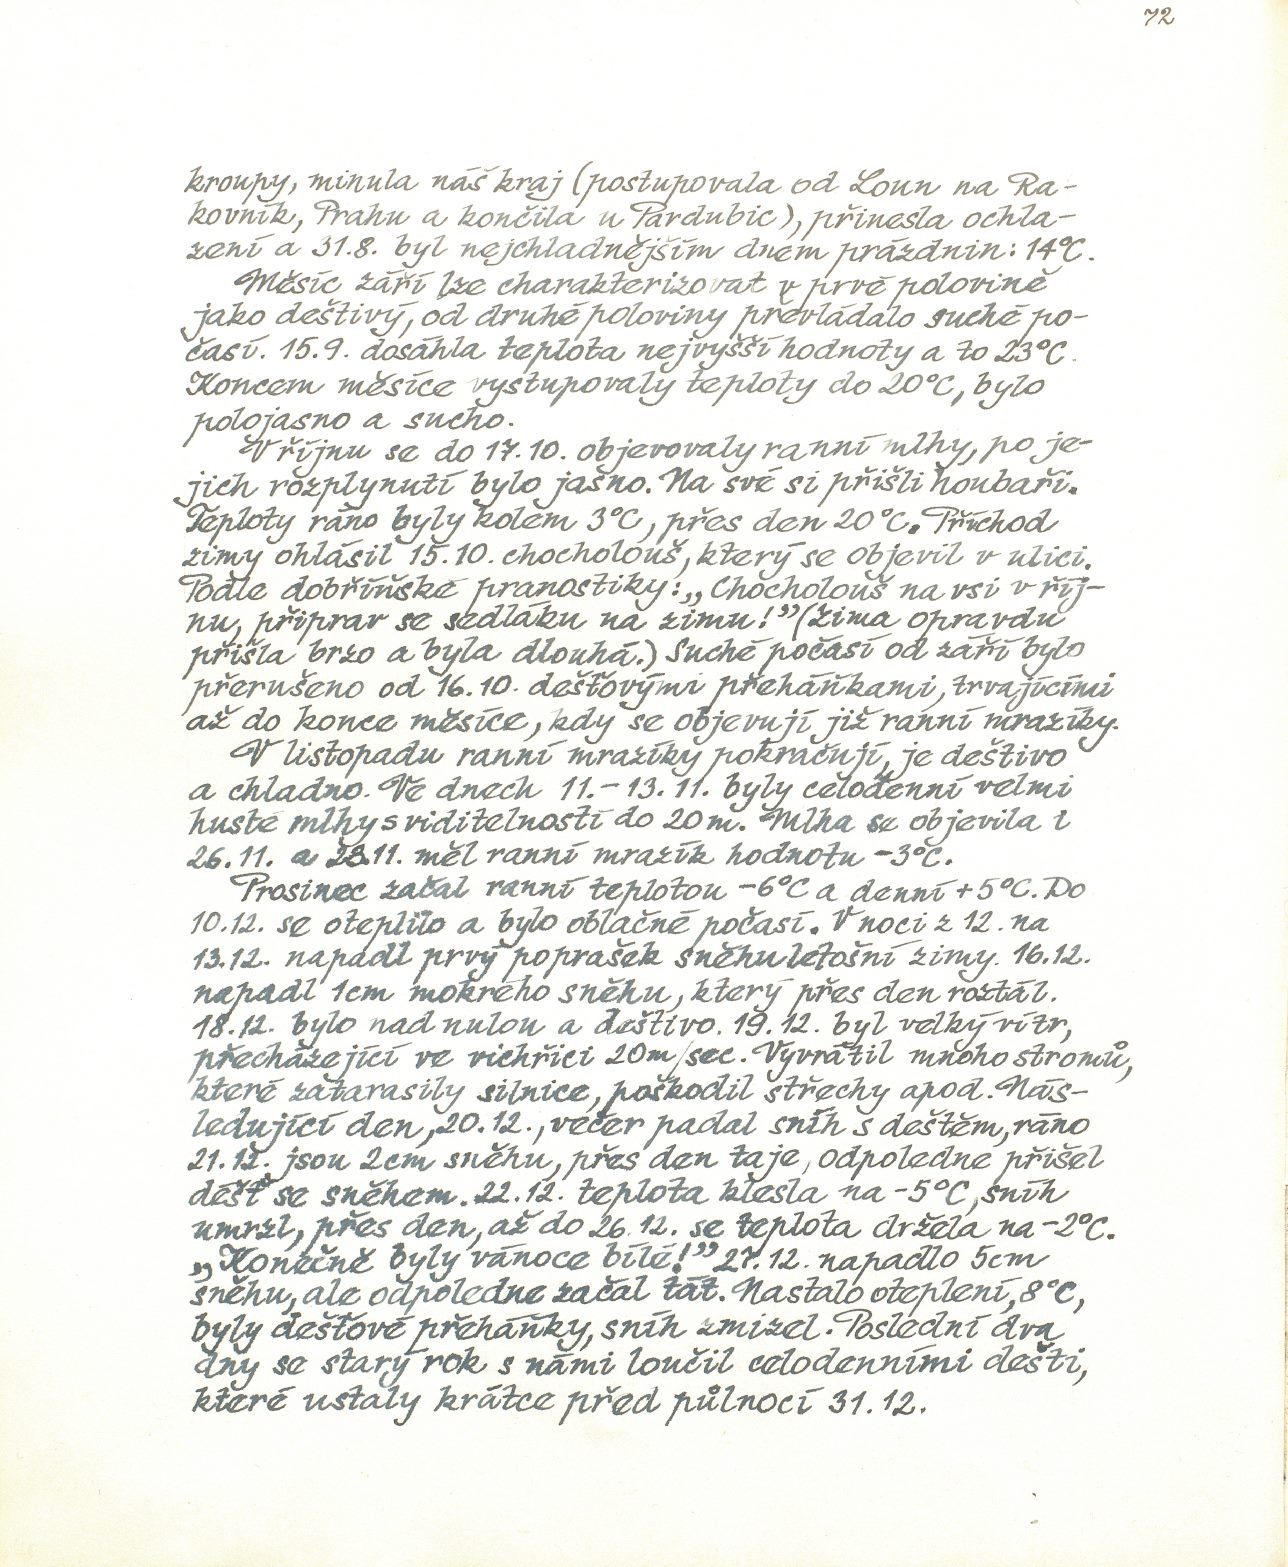 72
kroupy, minula náš kraj (postupovala od Loun na Ra-
kovník, Prahu a končila u Pardubic), přinesla ochla-
zení a 31.8. byl nejchladnějším dnem prázdnin: 14°C.
Měsíc září lze charakterizovat v prvé polovině
jako deštivý, od druhé poloviny převládalo suché po-
časí. 15.9. dosáhla teplota nejvyšší hodnoty a to 23°C.
Koncem měsíce vystupovaly teploty do 20°C, bylo
polojasno a sucho.
V říjnu se do 17.10. objevovaly ranní mlhy, po je-
jich rozplynutí bylo jasno. Na své si přišli houbaři.
Teploty ráno byly kolem 3°C, přes den 20°C. Příchod
zimy ohlásil 15.10. chocholouš, který se objevil v ulici.
Podle dobříňské pranostiky: „Chocholouš na vsi v říj-
nu, připrav se sedláku na zimu!" (Zima opravdu
přišla brzo a byla dlouhá.) Suché počasí od září bylo
přerušeno od 16.10. dešťovými přeháňkami, trvajícími
až do konce měsíce, kdy se objevují již ranní mrazíky.
V listopadu ranní mrazíky pokračují, je deštivo
a chladno. Ve dnech 11.-13.11. byly celodenní velmi
husté mlhy s viditelností do 20 m. Mlha se objevila i
26.11. a 28.11. měl ranní mrazík hodnotu -3°C.
Prosinec začal ranní teplotou -6°C a denní +5°C. Do
10.12. se oteplilo a bylo oblačné počasí. V noci z 12. na
13.12. napadl prvý poprašek sněhu letošní zimy. 16.12.
napadl 1cm mokrého sněhu, který přes den roztál.
18.12. bylo nad nulou a deštivo. 19.12. byl velký vítr,
přecházející ve vichřici 20m/sec. Vyvrátil mnoho stromů,
které zatarasily silnice, poškodil střechy apod. Nás-
ledující den, 20.12., večer padal sníh s deštěm, ráno
21.12. jsou 2cm sněhu, přes den taje, odpoledne přišel
déšť se sněhem. 22.12. teplota klesla na -5°C, sníh
umrzl, přes den, až do 26.12. se teplota držela na -2°C.
„Konečně byly vánoce bílé!" 27.12. napadlo 5cm
sněhu, ale odpoledne začal tát. Nastalo oteplení, 8°C,
byly dešťové přeháňky, sníh zmizel. Poslední dva
dny se starý rok s námi loučil celodenními dešti,
které ustaly krátce před půlnocí 31.12.